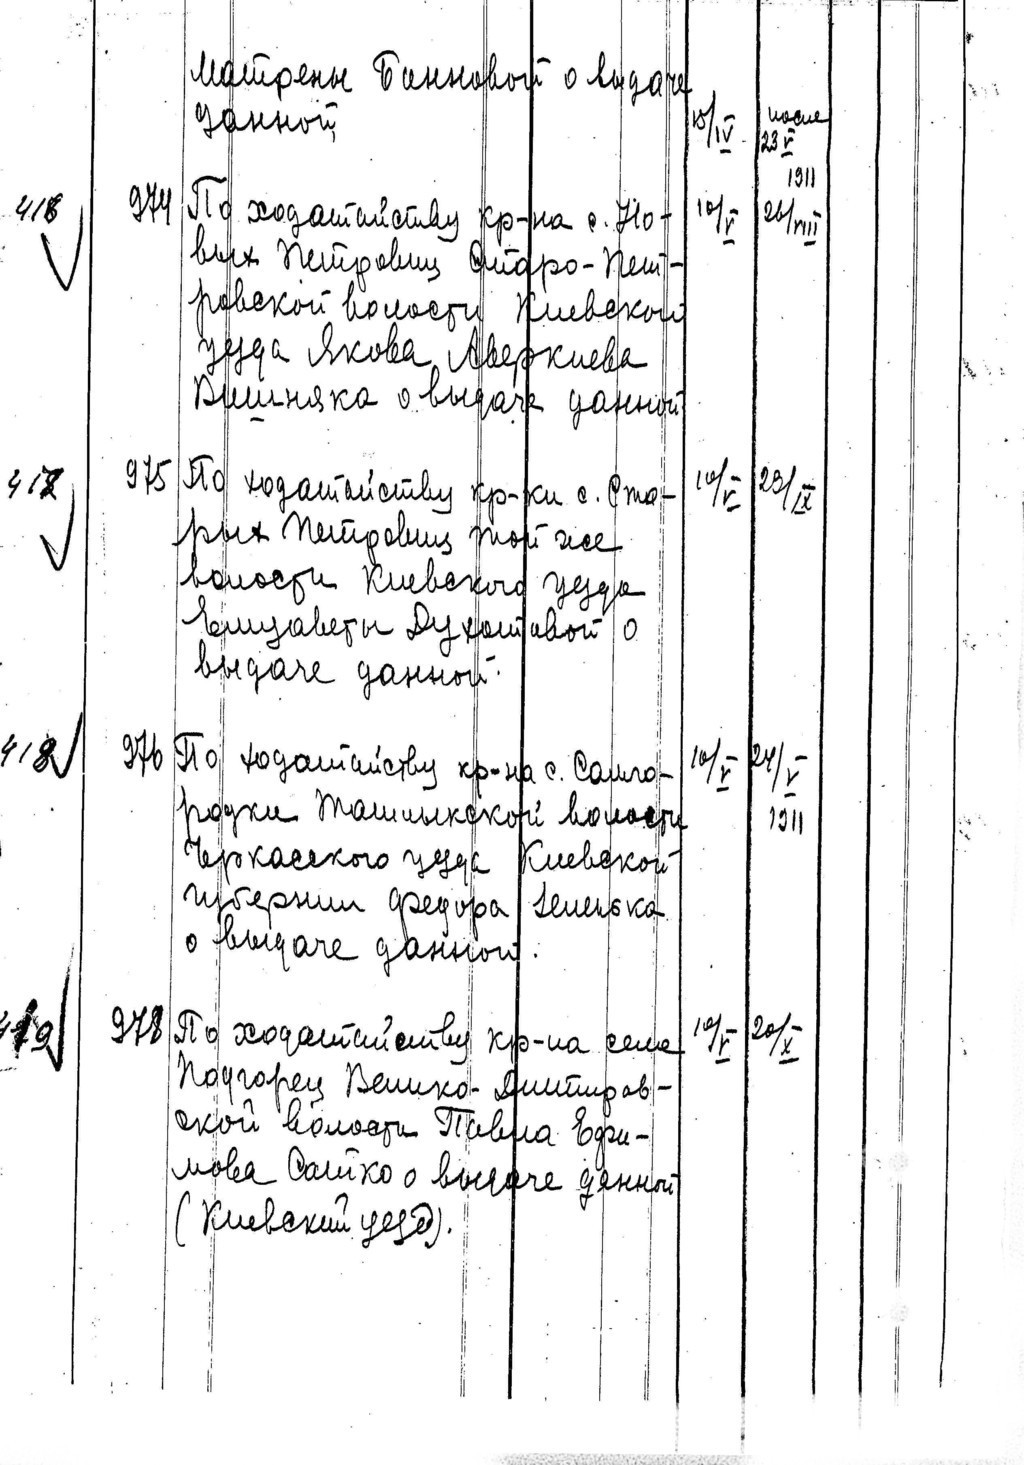 Матрены Банновой о выдаче
данной 15/IV после
23 V
1911
418 974 По ходатайству кр-на с. Но- 10/V 26/VIII
вых Петровиц Старо-Пет-
ровской волости Киевской
уезда Якова Аверкиева
Вишняка о выдаче данной
418 975 По ходатайству кр-ки с. Ста- 10/V 29/IX
рых Петровиц той же
волости Киевского уезда
Елизаветы Духотовой о
выдаче данной.
418 976 По ходатайству кр-на с. Самго- 10/V 24/V
родки Ташлыкской волости 1911
Черкасского уезда Киевской
губернии Федора Земенька
о выдаче данной.
419 978 По ходатайству кр-на села 10/V 20/X
Подгорец Велико-Дмитров-
ской волости Павла Ефи-
мова Сашко о выдаче данной
(Киевский уезд).